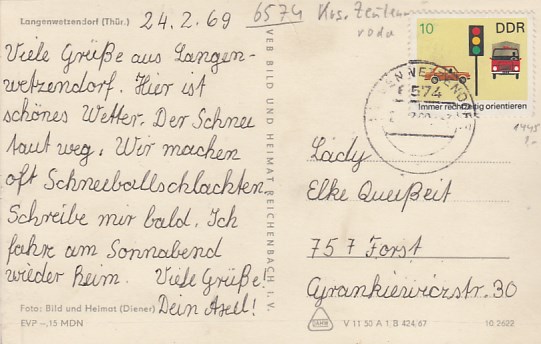 Langenwetzendorf (Thür.)
24.2.69
6574 Krs. Zeulenroda
Viele Grüße aus Langen-
wetzendorf. Hier ist
schönes Wetter. Der Schnee
taut weg. Wir machen
oft Schneeballschlachten.
Schreibe mir bald. Ich
fahre am Sonnabend
wieder heim. Viele Grüße!
Dein Axel!
Foto: Bild und Heimat (Diener)
EVP -,15 MDN
VEB BILD UND HEIMAT REICHENBACH I. V.
10 DDR
Immer rechtzeitig orientieren
6574
1445
Lady
Elke Queißeit
757 Forst
Gyrankiewiczstr. 30
V 11 50 A 1 B 424/67
10 2622